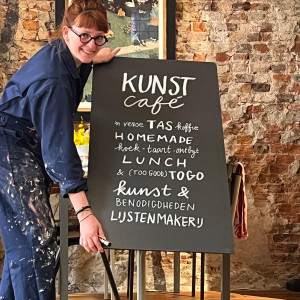 KUNST
café
'n verse TAS koffie
HOMEMADE
koek - taart - ontbijt
LUNCH
& (TOO GOOD) TO GO
kunst &
BENODIGDHEDEN
LIJSTENMAKERIJ